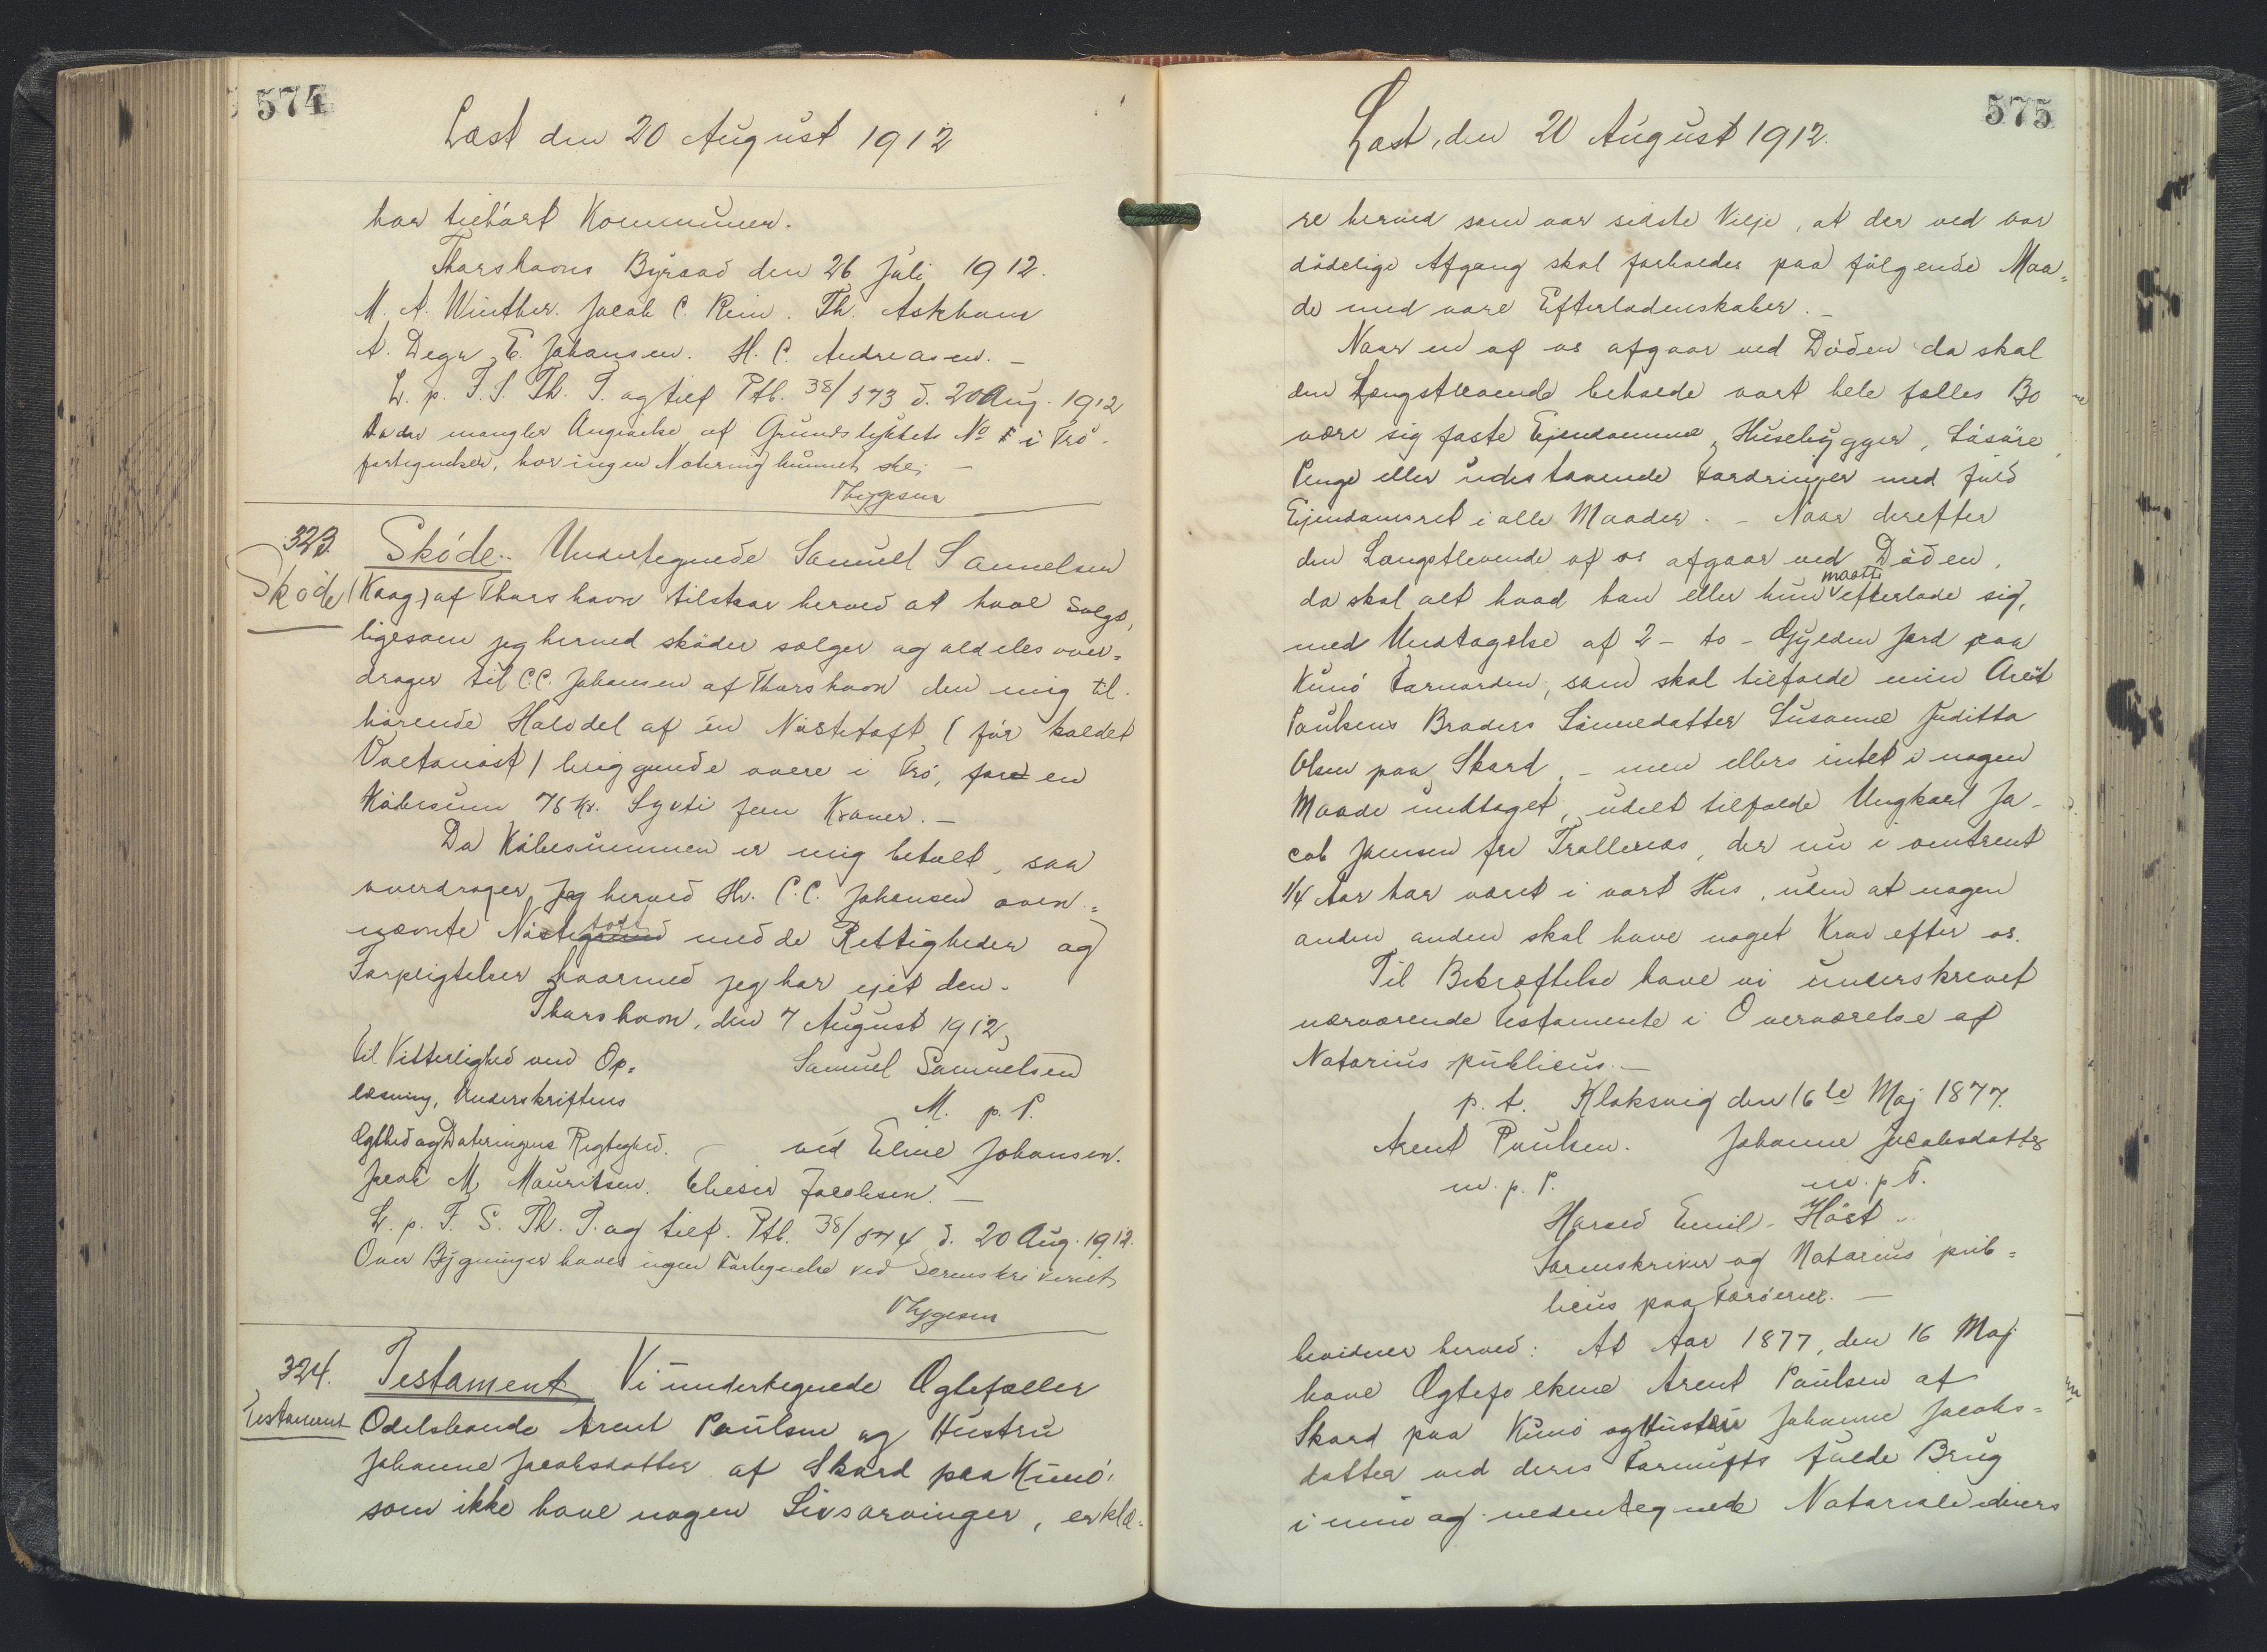 574
Læst den 20 August 1912
har tilhört Kommunen.
Thorshavns Byraad den 26 Juli 1912.
M. A. Winther. Jacob C. Rein. Th. Askham
A. Degn E. Johansen. H. C. Andreasen. –
L. p. F. S. Th. T. og tilf Ptb. 38/573 d. 20 Aug. 1912
Da der mangler Angivelse af Grundstykkets No i
fortegnelsen, har ingen Notering kunnet ske; –
Thygesen
323.
Sköde
Sköde.. Undertegnede Samuel Samuelsen
(Kaag) af Thorshavn tilstaar herved at have Solgt,
ligesom jeg herved sköder sælger og aldeles over=
drager til C.C. Johansen af Thorshavn den mig til-
hörende Halvdel af én Nöstetoft (för kaldet
beliggende övere i Trö, for en
Köbesum 75 Kr. Syvti fem Kroner. –
Da Köbesummen er mig betalt, saa
overdrager Jeg herved Hr. C.C. Johansen oven=
nævnte Nöstegrund toft med de Rettigheder og
Forpligtelser hvormed jeg har ejet den.
Thorshavn, den 7 August 1912,
til Vitterlighed ved Op=
læsning, Underskriftens
Ægthed og Dateringens Rigtighed.
Samuel Samuelsen
M. p. P.
ved Eline Johansen.
Jacob M. Mauritsen. Elieser Jacobsen. –
L. p. F. S. Th. T. og tilf. Ptb. 38/574 d. 20 Aug. 1912.
Over Bygninger haves ingen Fortegnelse ved Sorenskriveriet
Thygesen
324.
Testament
Testament Vi undertegnede Ægtefæller
Odelsbonde Arent Poulsen og Hustru
Johanne Jacobsdatter af Skard paa Kunö,
som ikke have nogen Livsarvinger, erklæ=
575
Læst, den 20 August 1912.
re herved som vor sidste Vilje, at der ved vor
dödelige Afgang skal forholdes paa fölgende Maa=
de med vore Efterladenskaber. –
Naar en af os afgaar ved Döden da skal
den Længstlevende beholde vort hele fælles Bo
være sig faste Ejendomme, Husebygger, Lösöre,
Penge eller udestaaende Fordringer med fuld
Ejendomsret i alle Maader. – Naar derefter
den Længstlevende af os afgaar ved Döden,
da skal alt hvad han eller hun maatte efterlade sig,
med Undtagelse af 2 – to – Gylden Jord paa
Kunö Farnorden, som skal tilfalde min Arent
Poulsens Broders Sönnedatter Susanne Juditta
Olsen paa Skard, – men ellers intet i nogen
Maade undtaget, udelt tilfalde Ungkarl Ja-
cob Joensen fra Trollenæs, der nu i omtrent
1/4 Aar har været i vort Hus, uden at nogen
anden anden skal have noget Krav efter os.
Til Bekræftelse have vi underskrevet
nærværende Testamente i Overværelse af
Notarius publicus. –
p. t. Klaksvig den 16de Maj 1877.
Arent Poulsen. Johanne Jacobsdatter
m. p. P. m. p. P.
Harald Emil Höst..
Sorenskriver og Notarius pub=
licus paa Færöerne. –
bevidner herved: At Aar 1877, den 16 Maj
have Ægtefolkene Arent Poulsen af
Skard paa Kunö og Hustru Johanne Jacobs=
datter ved deres Fornufts fulde Brug
i min og nedentegnede Notarialvidners